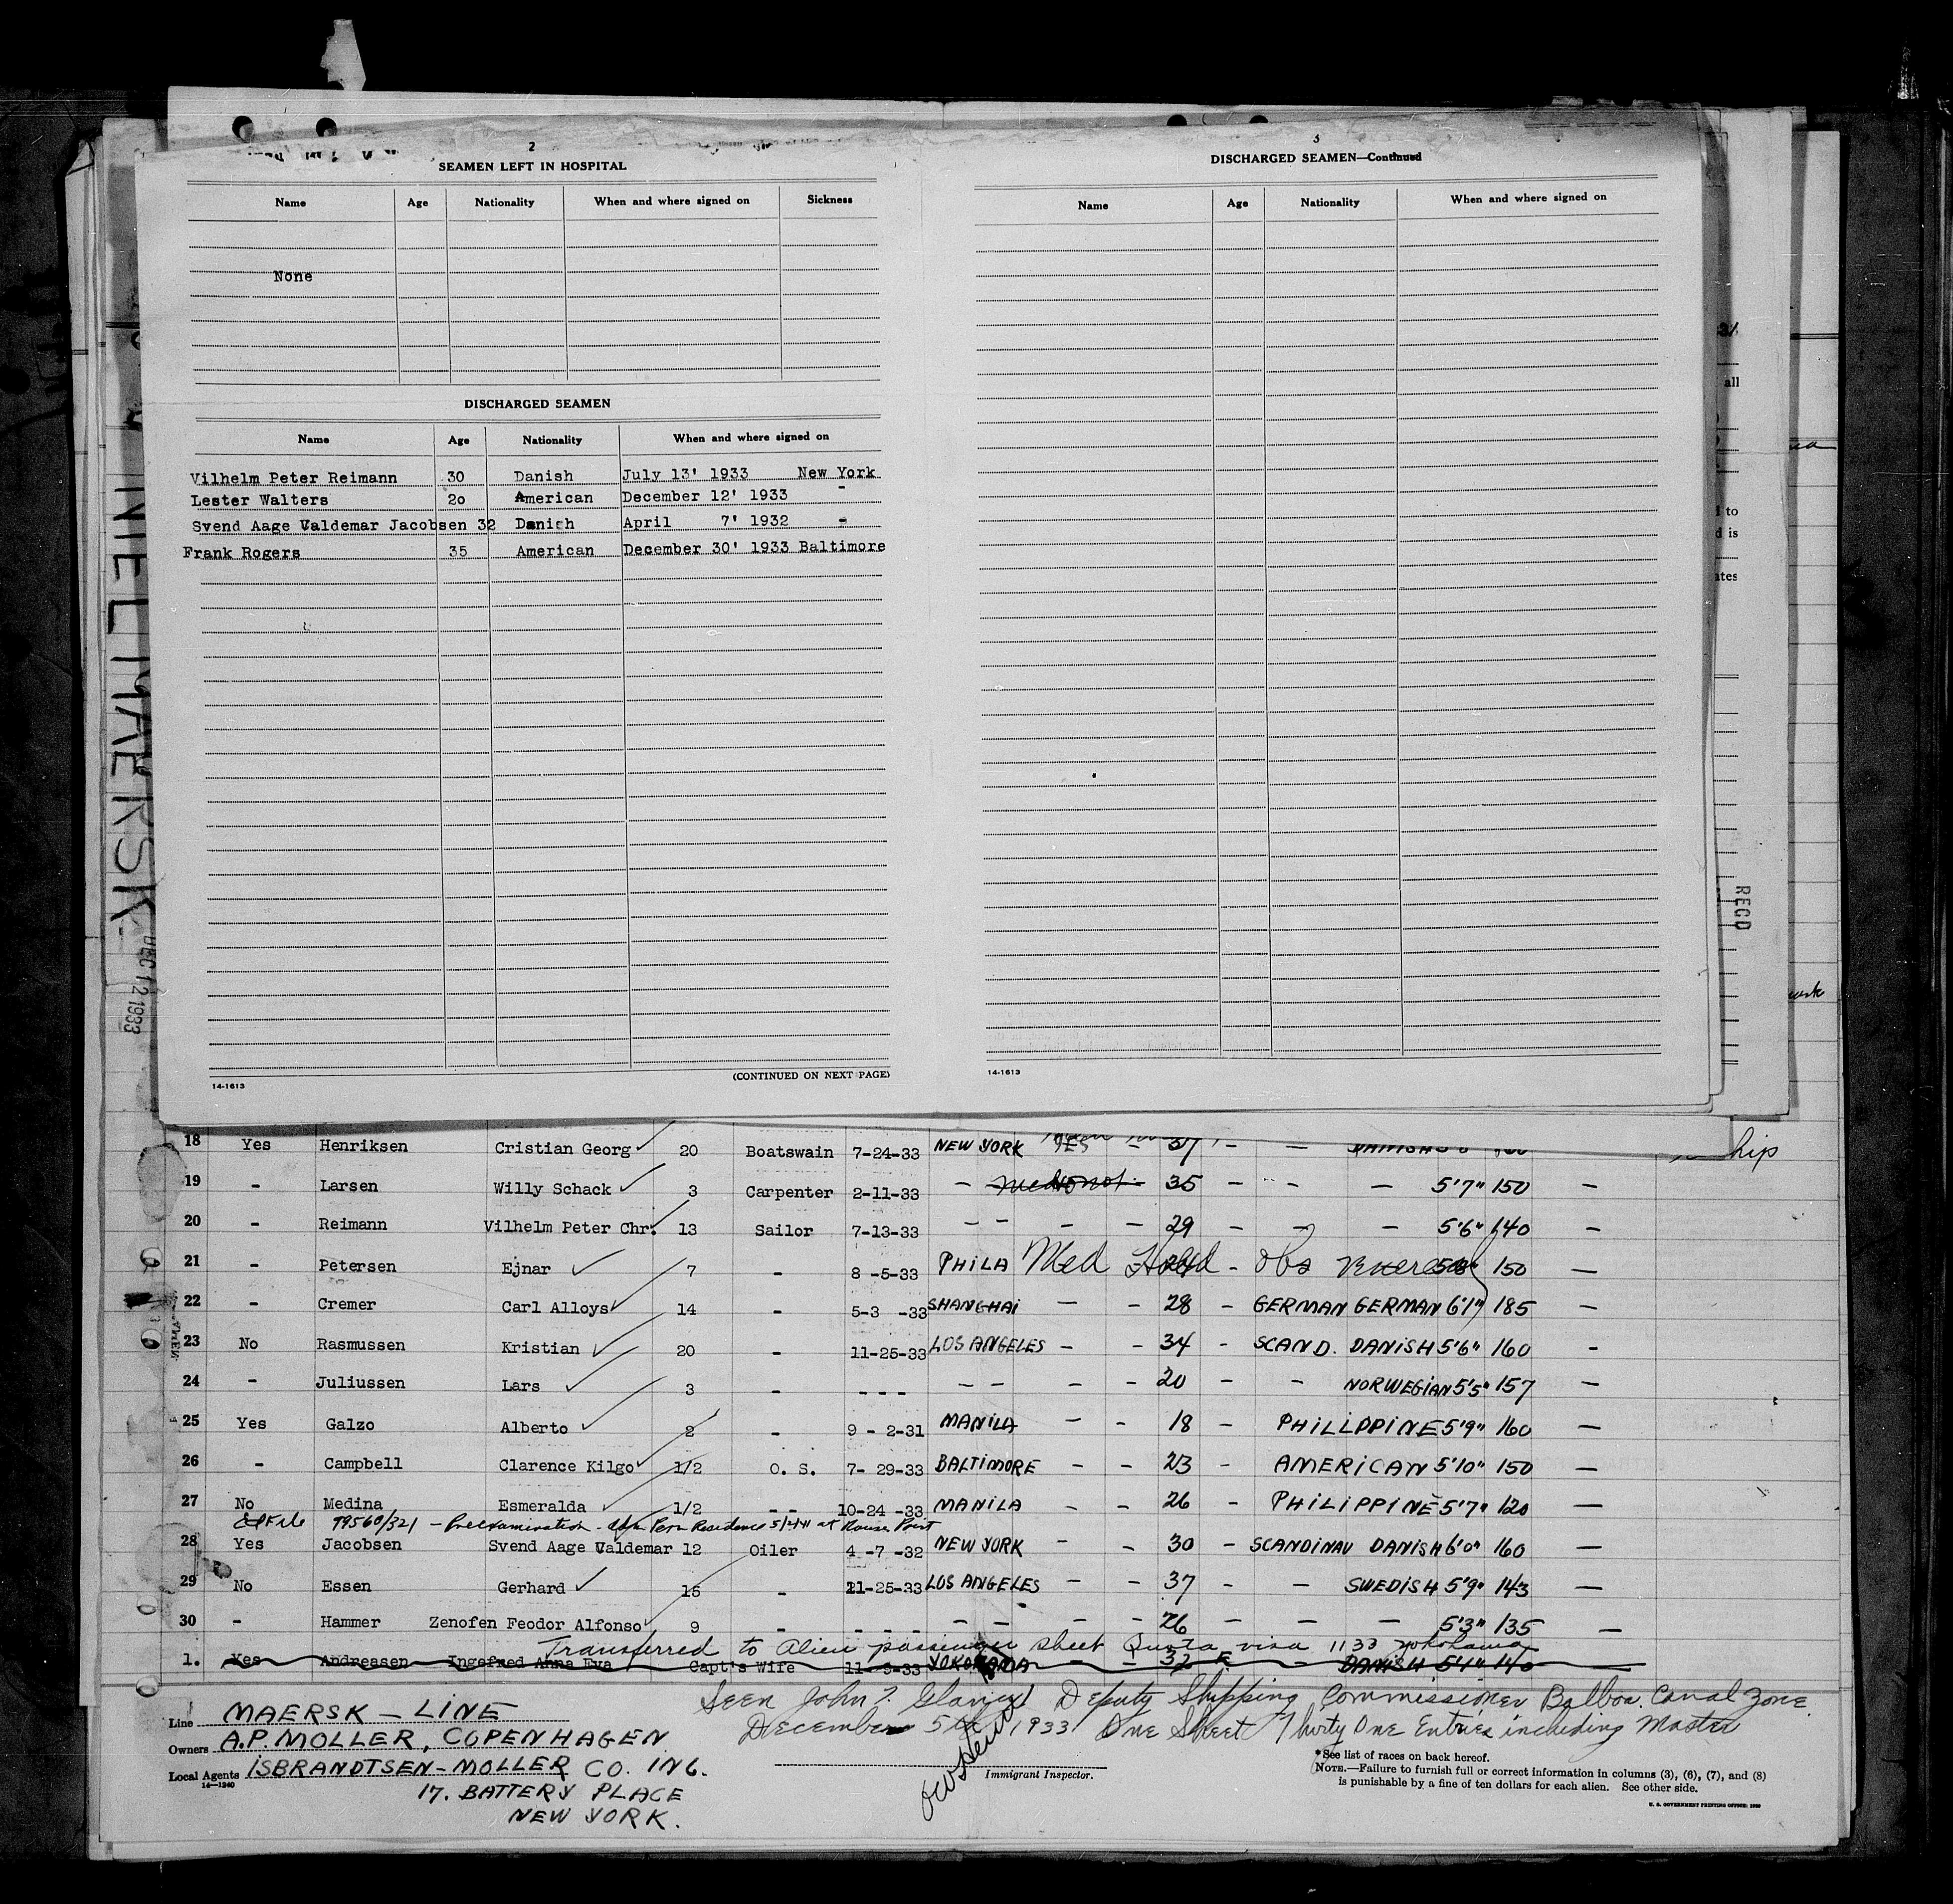 2
SEAMEN LEFT IN HOSPITAL
Name Age Nationality When and where signed on Sickness
None
DISCHARGED SEAMEN
Name Age Nationality When and where signed on
Vilhelm Peter Reimann 30 Danish July 13' 1933 New York
Lester Walters 20 American December 12' 1933 -
Svend Aage Valdemar Jacobsen 32 Danish April 7' 1932 -
Frank Rogers 35 American December 30' 1933 Baltimore
14-1613 (CONTINUED ON NEXT PAGE)
3
DISCHARGED SEAMEN—Continued
Name Age Nationality When and where signed on
14-1613
NIEL MAERSK-
DEC 12 1933
REC'D
all
to
is
18 Yes Henriksen Cristian Georg 20 Boatswain 7-24-33 NEW YORK YES - 37 - - DANISH
hip
19 - Larsen Willy Schack 3 Carpenter 2-11-33 - - 35 - - - 5'7" 150 -
20 - Reimann Vilhelm Peter Chr. 13 Sailor 7-13-33 - - - - 29 - - - 5'6" 140 -
21 - Petersen Ejnar 7 - 8-5-33 PHILA Med Hold - Obs Venereal 150 -
22 - Cremer Carl Alloys 14 - 5-3-33 SHANGHAI - - 28 - GERMAN GERMAN 6'1" 185 -
23 No Rasmussen Kristian 20 - 11-25-33 LOS ANGELES - - 34 - SCAND. DANISH 5'6" 160 -
24 - Juliussen Lars 3 - - - - - - - - 20 - - NORWEGIAN 5'5" 157 -
25 Yes Galzo Alberto 2 - 9-2-31 MANILA - - 18 - PHILIPPINE 5'9" 160 -
26 - Campbell Clarence Kilgo 1/2 O. S. 7-29-33 BALTIMORE - - 23 - AMERICAN 5'10" 150 -
27 No Medina Esmeralda 1/2 - - 10-24-33 MANILA - - 26 - PHILIPPINE 5'7" 120 -
File 99560/321 - Preexamination - Perm Residence 5/2/41 at Rouses Point
28 Yes Jacobsen Svend Aage Valdemar 12 Oiler 4-7-32 NEW YORK - - 30 - SCANDINAV DANISH 6'0" 160 -
29 No Essen Gerhard 15 - 11-25-33 LOS ANGELES - - 37 - - SWEDISH 5'9" 143 -
30 - Hammer Zenofen Feodor Alfonso 9 - - - - - - - - 26 - - - 5'3" 135 -
Transferred to Alien passenger sheet Quota visa 1133 Yokohama
1. Yes Andreasen Ingefred Anna Eva Capt's Wife 11-9-33 YOKOHAMA - - 32 F. - DANISH 5'4" 140
Seen John Deputy Shipping Commissioner Balboa. Canal Zone.
December 5th 1933 One Sheet Thirty One Entries including Master
Line MAERSK - LINE
Owners A.P. MOLLER, COPENHAGEN
Local Agents ISBRANDTSEN-MOLLER CO. INC.
14-1240
17. BATTERY PLACE
NEW YORK.
Immigrant Inspector.
* See list of races on back hereof.
NOTE.—Failure to furnish full or correct information in columns (3), (6), (7), and (8)
is punishable by a fine of ten dollars for each alien. See other side.
U. S. GOVERNMENT PRINTING OFFICE: